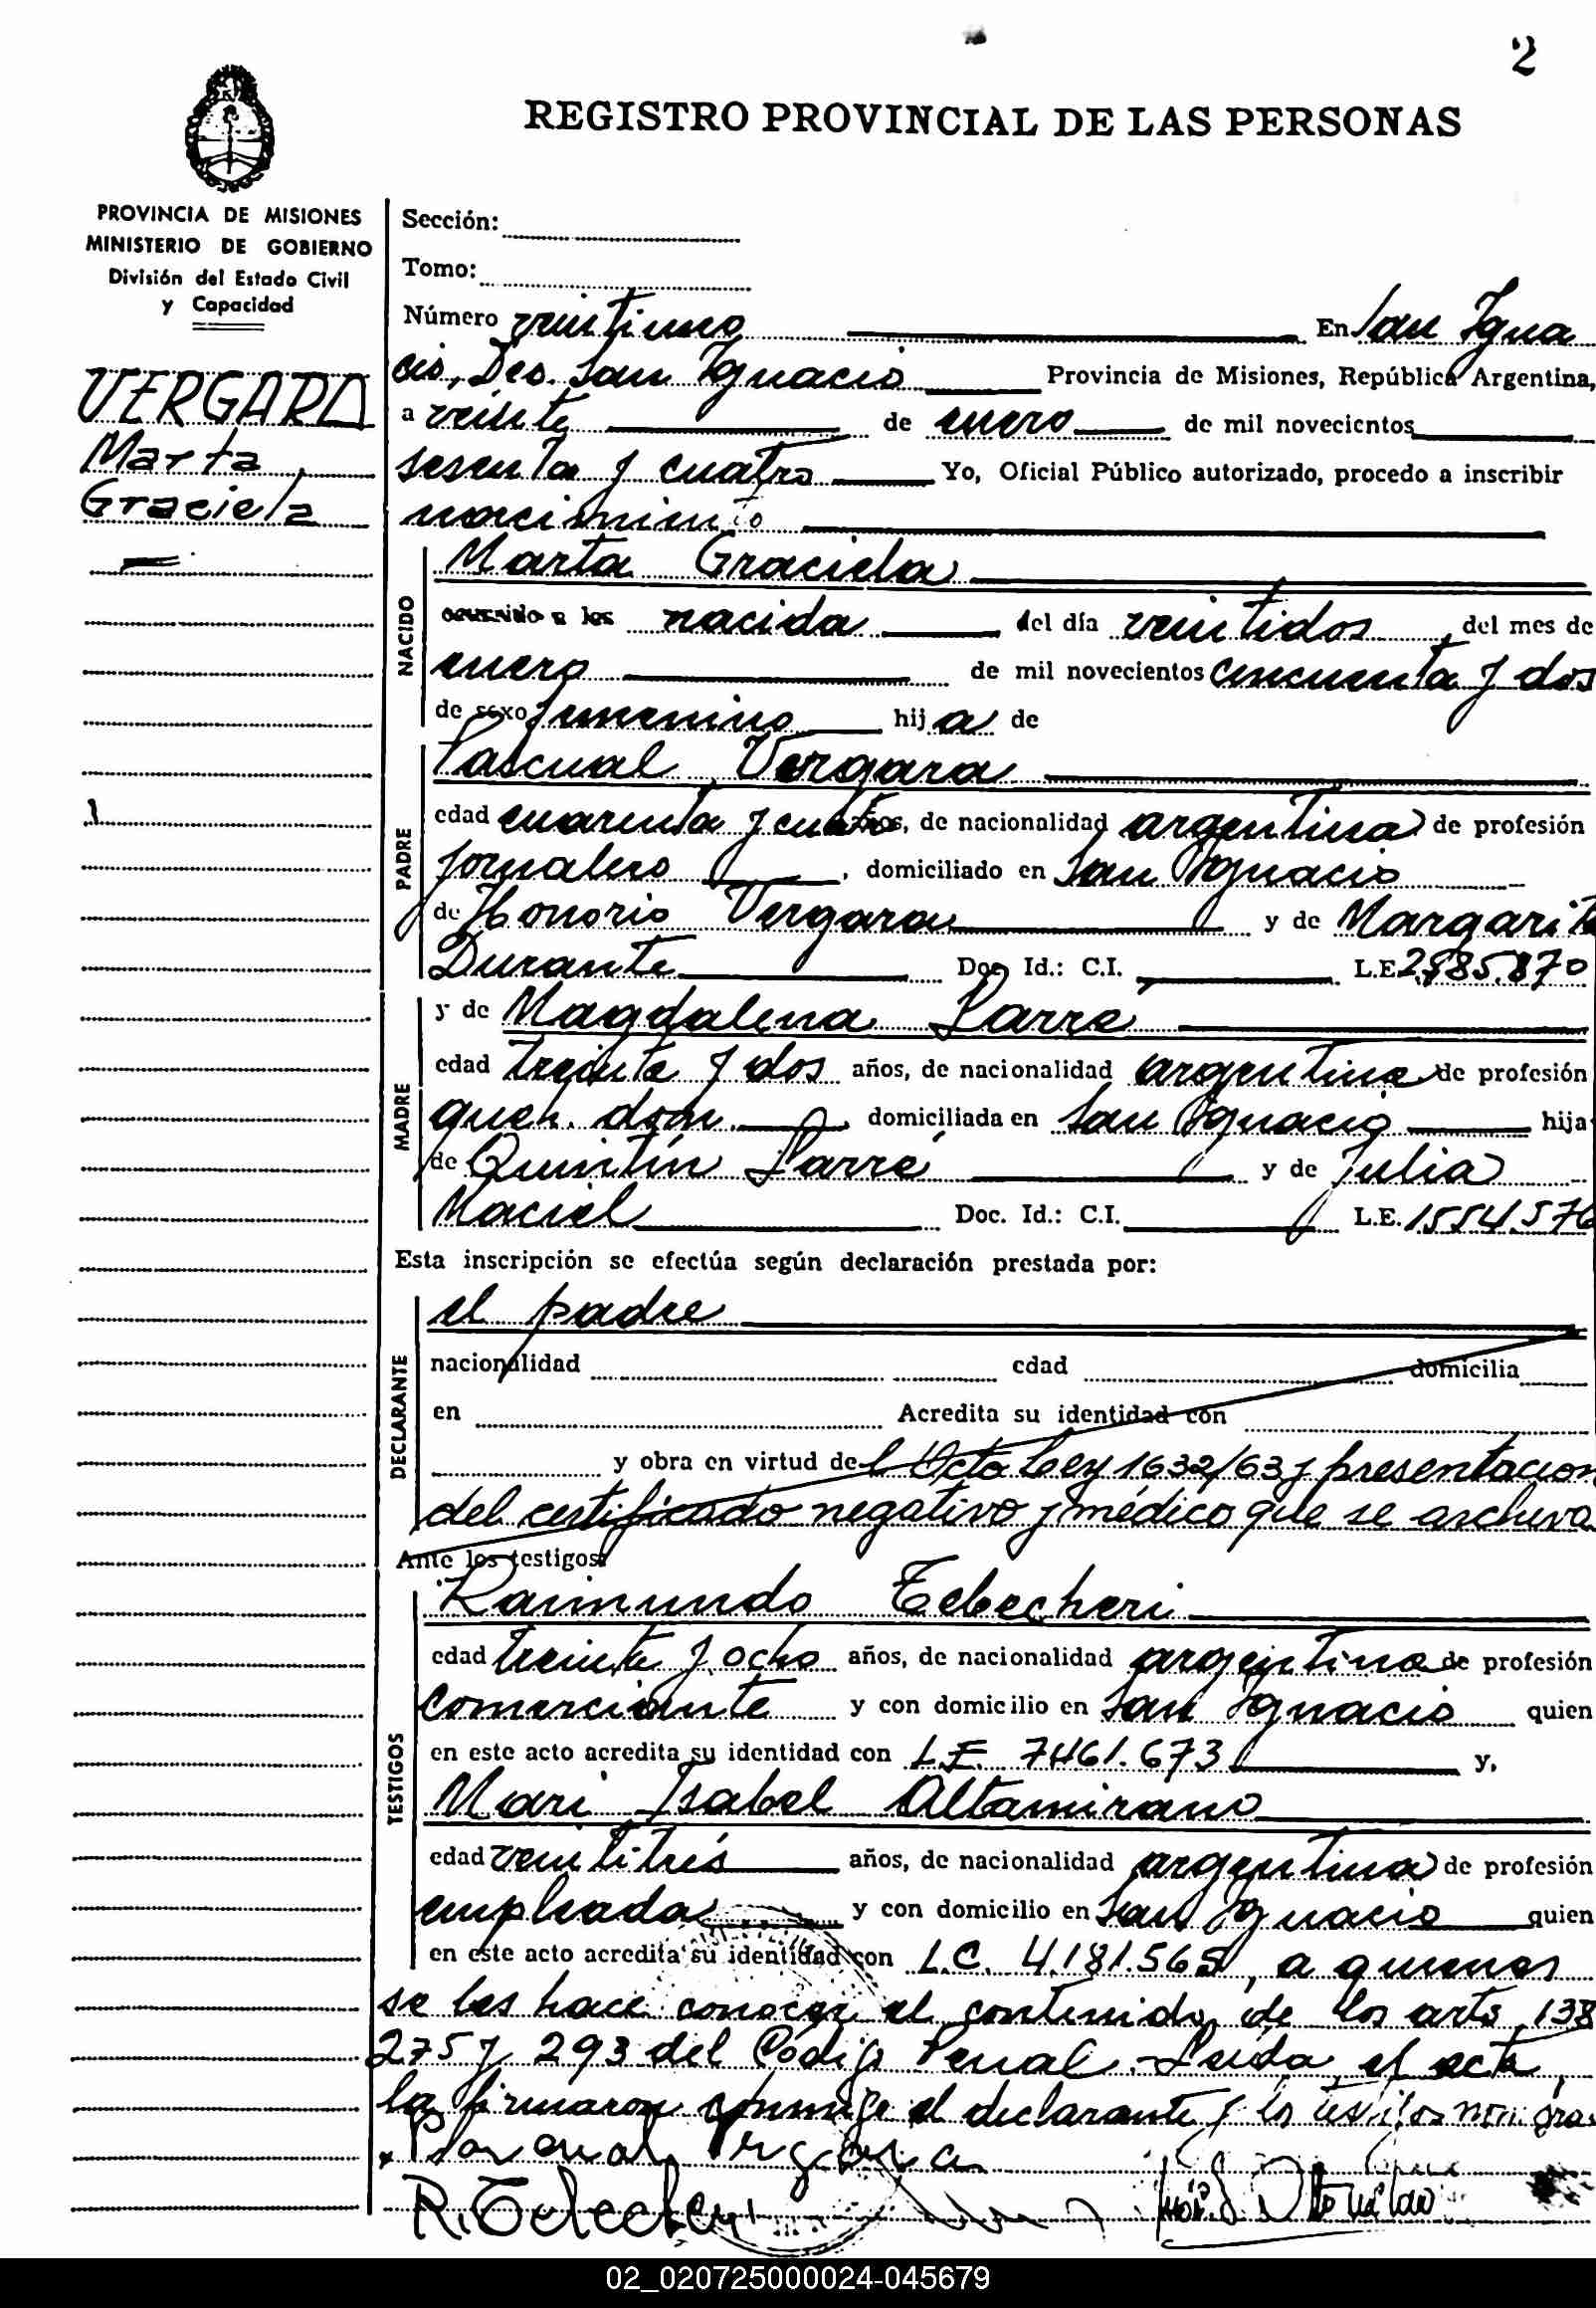 2
REGISTRO PROVINCIAL DE LAS PERSONAS
PROVINCIA DE MISIONES
MINISTERIO DE GOBIERNO
División del Estado Civil
y Capacidad
VERGARA
Marta
Graciela
Sección:
Tomo:
Número veintiuno En San Igna
cio, Dto. San Ignacio Provincia de Misiones, República Argentina,
a veinte de enero de mil novecientos
sesenta y cuatro Yo, Oficial Público autorizado, procedo a inscribir
nacimiento
NACIDO
Marta Graciela
ocurrido a las nacida del día veintidos, del mes de
enero de mil novecientos cincuenta y dos
de sexo femenino hija de
PADRE
Pascual Vergara
edad cuarenta y cuatro años, de nacionalidad argentina de profesión
jornalero, domiciliado en San Ignacio
de Honorio Vergara y de Margarita
Durante Doc. Id.: C.I. L.E.
MADRE
y de Magdalena Larré
edad treinta y dos años, de nacionalidad argentina de profesión
queh. dom., domiciliada en San Ignacio hija
de Quintín Larré y de Julia
Maciel Doc. Id.: C.I. L.E. 1554.576
Esta inscripción se efectúa según declaración prestada por:
DECLARANTE
el padre
nacionalidad edad domicilia
en Acredita su identidad con
y obra en virtud del Dcto Ley 1632/63 y presentacion
del certificado negativo y médico que se archiva
Ante los testigos:
TESTIGOS
Raimundo Tebecheri
edad treinta y ocho años, de nacionalidad argentina de profesión
comerciante y con domicilio en San Ignacio quien
en este acto acredita su identidad con L.E. 7461.673 y,
Mari Isabel Altamirano
edad veintitrés años, de nacionalidad argentina de profesión
empleada y con domicilio en San Ignacio quien
en este acto acredita su identidad con L.C. 4.181.565, a quienes
se les hace conocer el contenido de los arts 138
275 y 293 del Código Penal.- Leida el acta,
la firmaron conmigo el declarante y los testigos
Pascual Vergara
R. Tebecheri
02_020725000024-045679